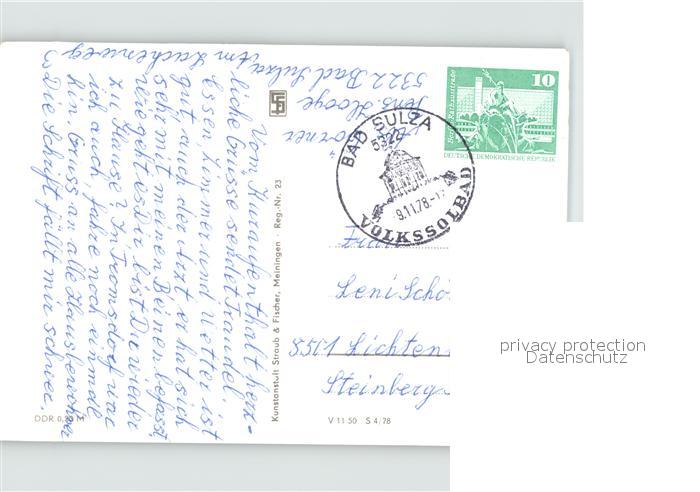 Vom Kuraufenthalt herz-
liche Grüsse sendet Traudel.
Essen Zimmer und Wetter ist
gut, auch der Arzt er hat sich
sehr mit meinen Beinen befasst,
wie geht es Dir bist Du wieder
zu Hause? In Tromsdorf war
ich auch, fahre noch einmal
hin Gruss an alle Hausbewohner
Die Schrift fällt mir schwer.
5322 Bad Sulza, Am Lachenweg
Jens Hooge
10
DEUTSCHE DEMOKRATISCHE REPUBLIK
BAD SULZA
5322
9.11.78
VOLKSSOLBAD
Frau
Leni Scho
Lichten
Steinberg
Kunstanstalt Straub & Fischer, Meiningen · Reg.-Nr. 23
DDR 0,20 M
V 11 50 S 4/78
privacy protection
Datenschutz